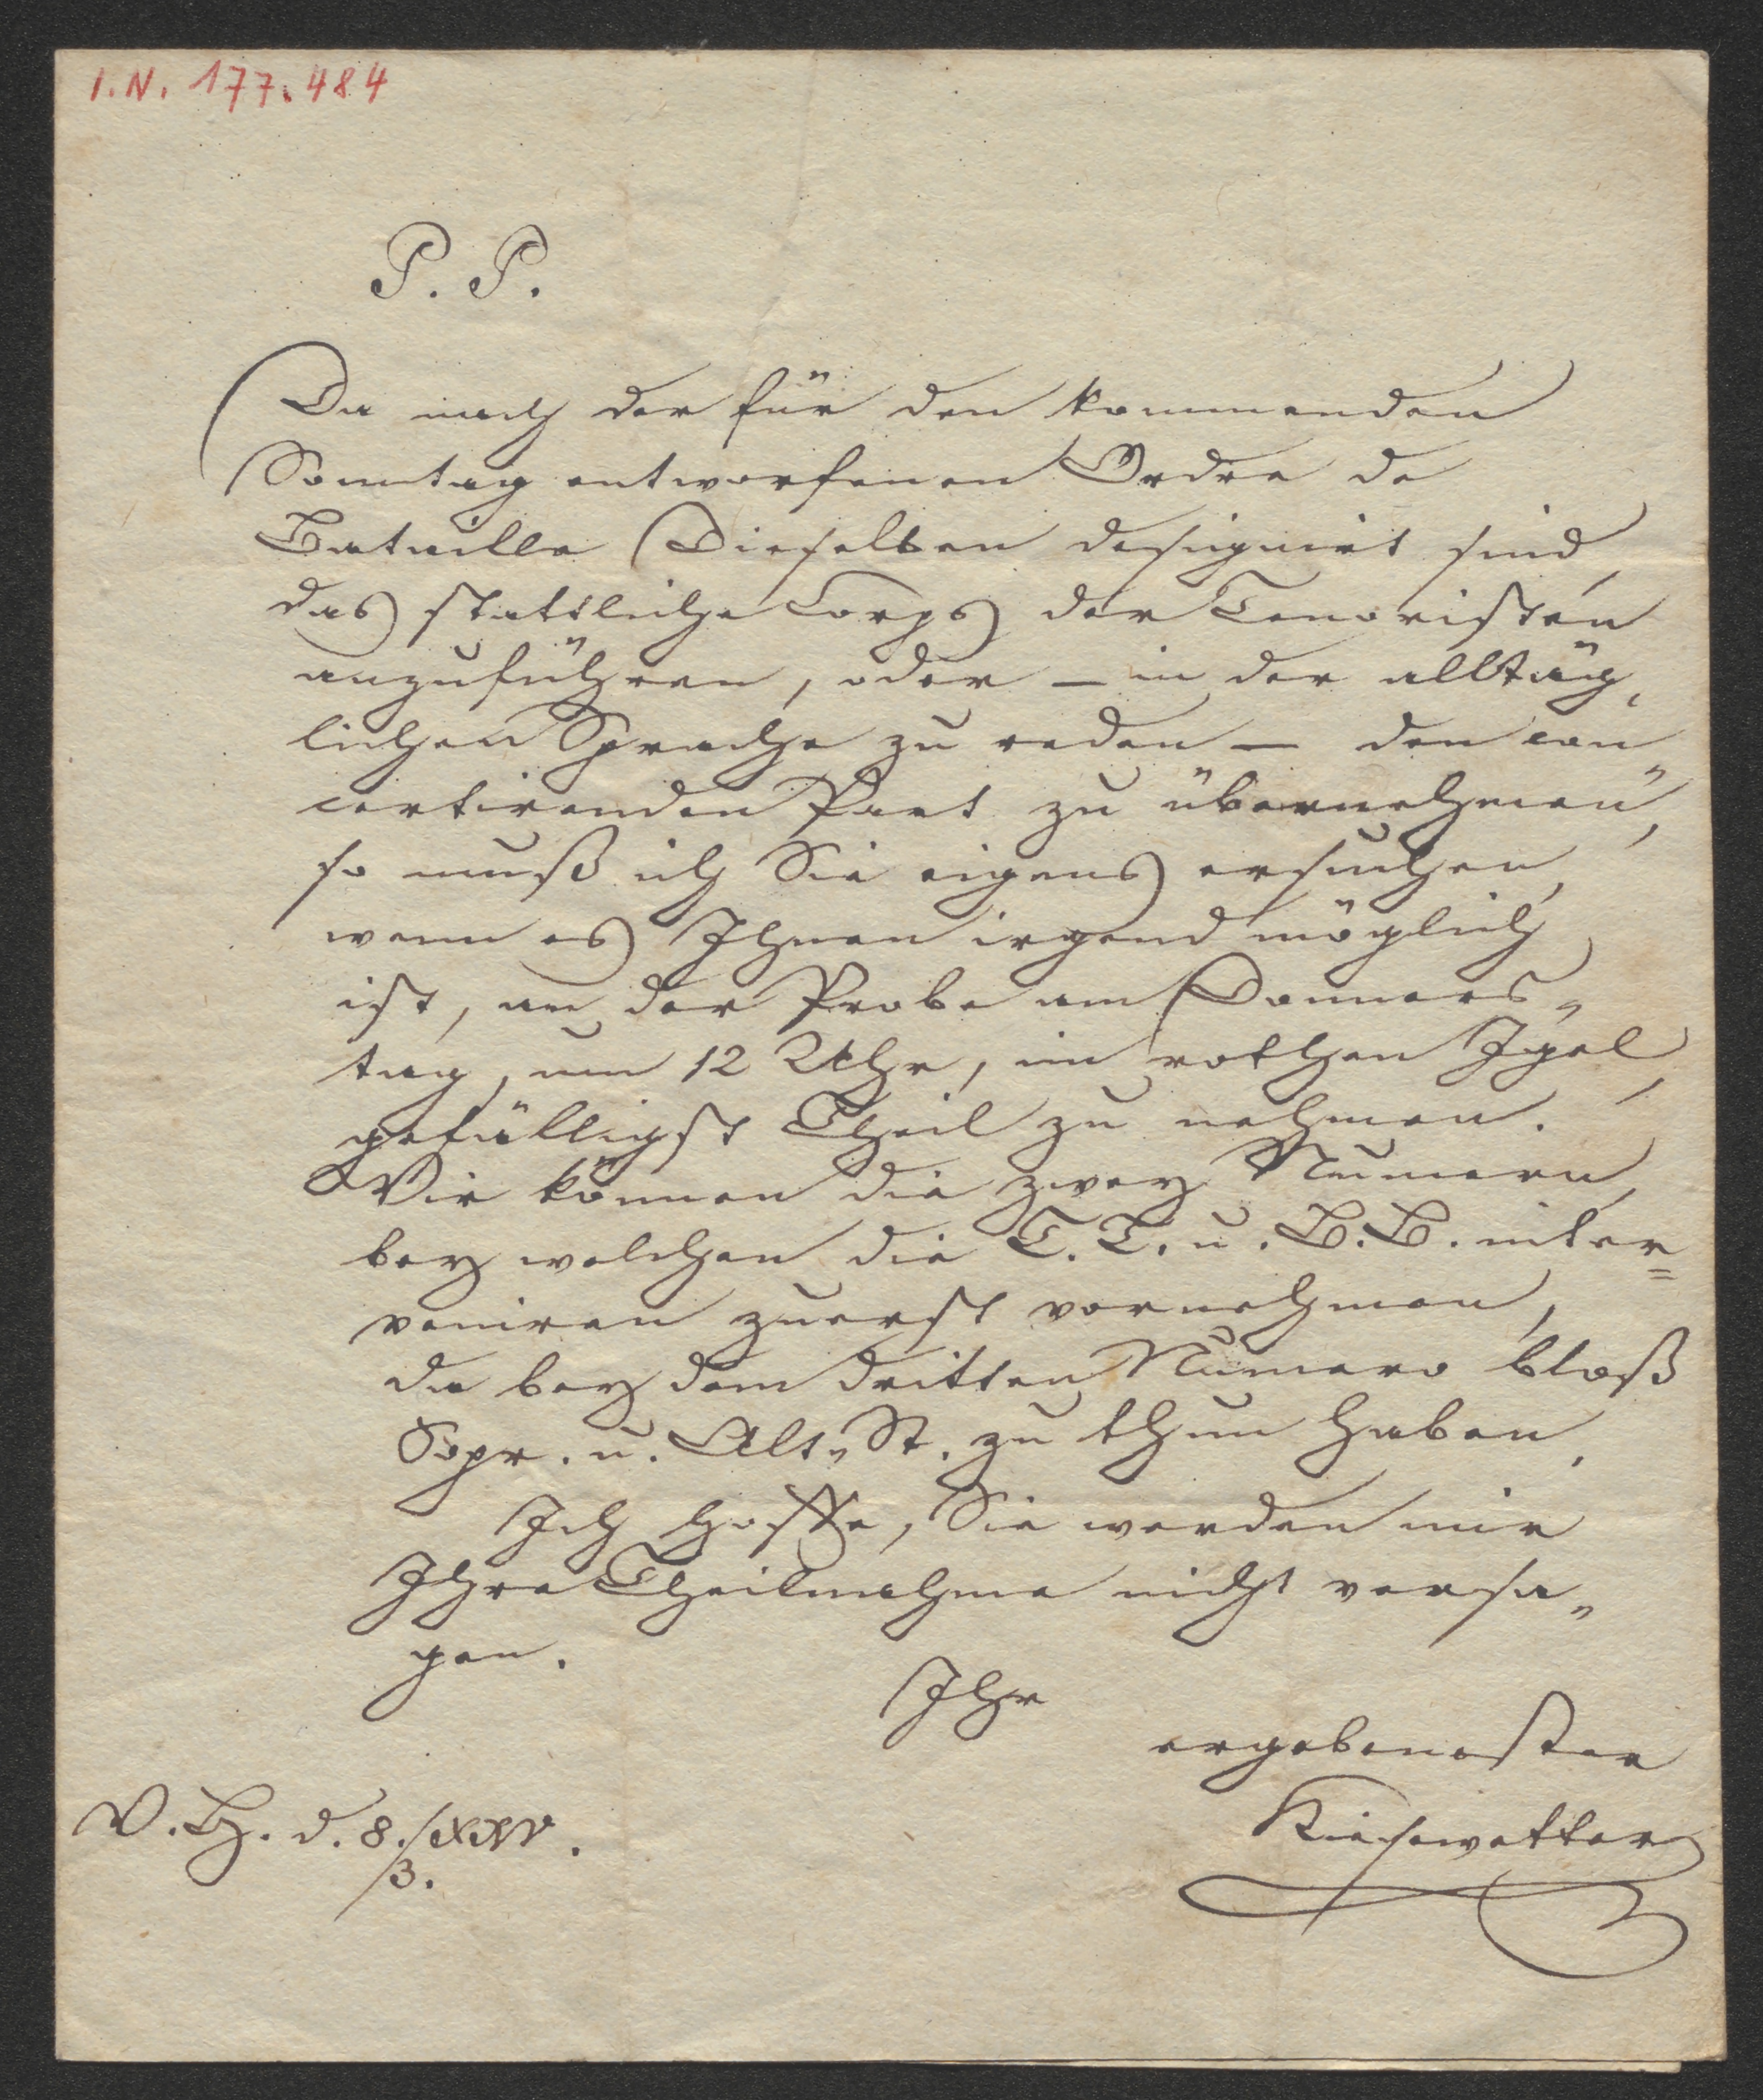 I.N. 177.484
P. P.
Da nach der für den kommenden
Sonntag entworfenen Ordre de
Bataille Dieselben designirt sind
das stattliche Corps der Tenoristen
anzuführen, oder – in der alltäg„
lichen Sprache zu reden – den con„
certirenden Part zu übernehmen,
so muß ich Sie eigens ersuchen,
wenn es Ihnen irgend möglich
ist, an der Probe am Donners„
tag, um 12 Uhr, im rothen Igel,
gefälligst Theil zu nehmen.
Wir können die zwey Numern,
bey welchen die T. T. u. B. B. inter=
veniren zuerst vornehmen,
da bey dem dritten Numero bloß
Sopr. u. Alt„ St. zu thun haben.
Ich hoffe, Sie werden mir
Ihre Theilnahme nicht versa„
gen.
Ihr
ergebenster
Kiesewetter
V. H. d. 8./XXV.
3.